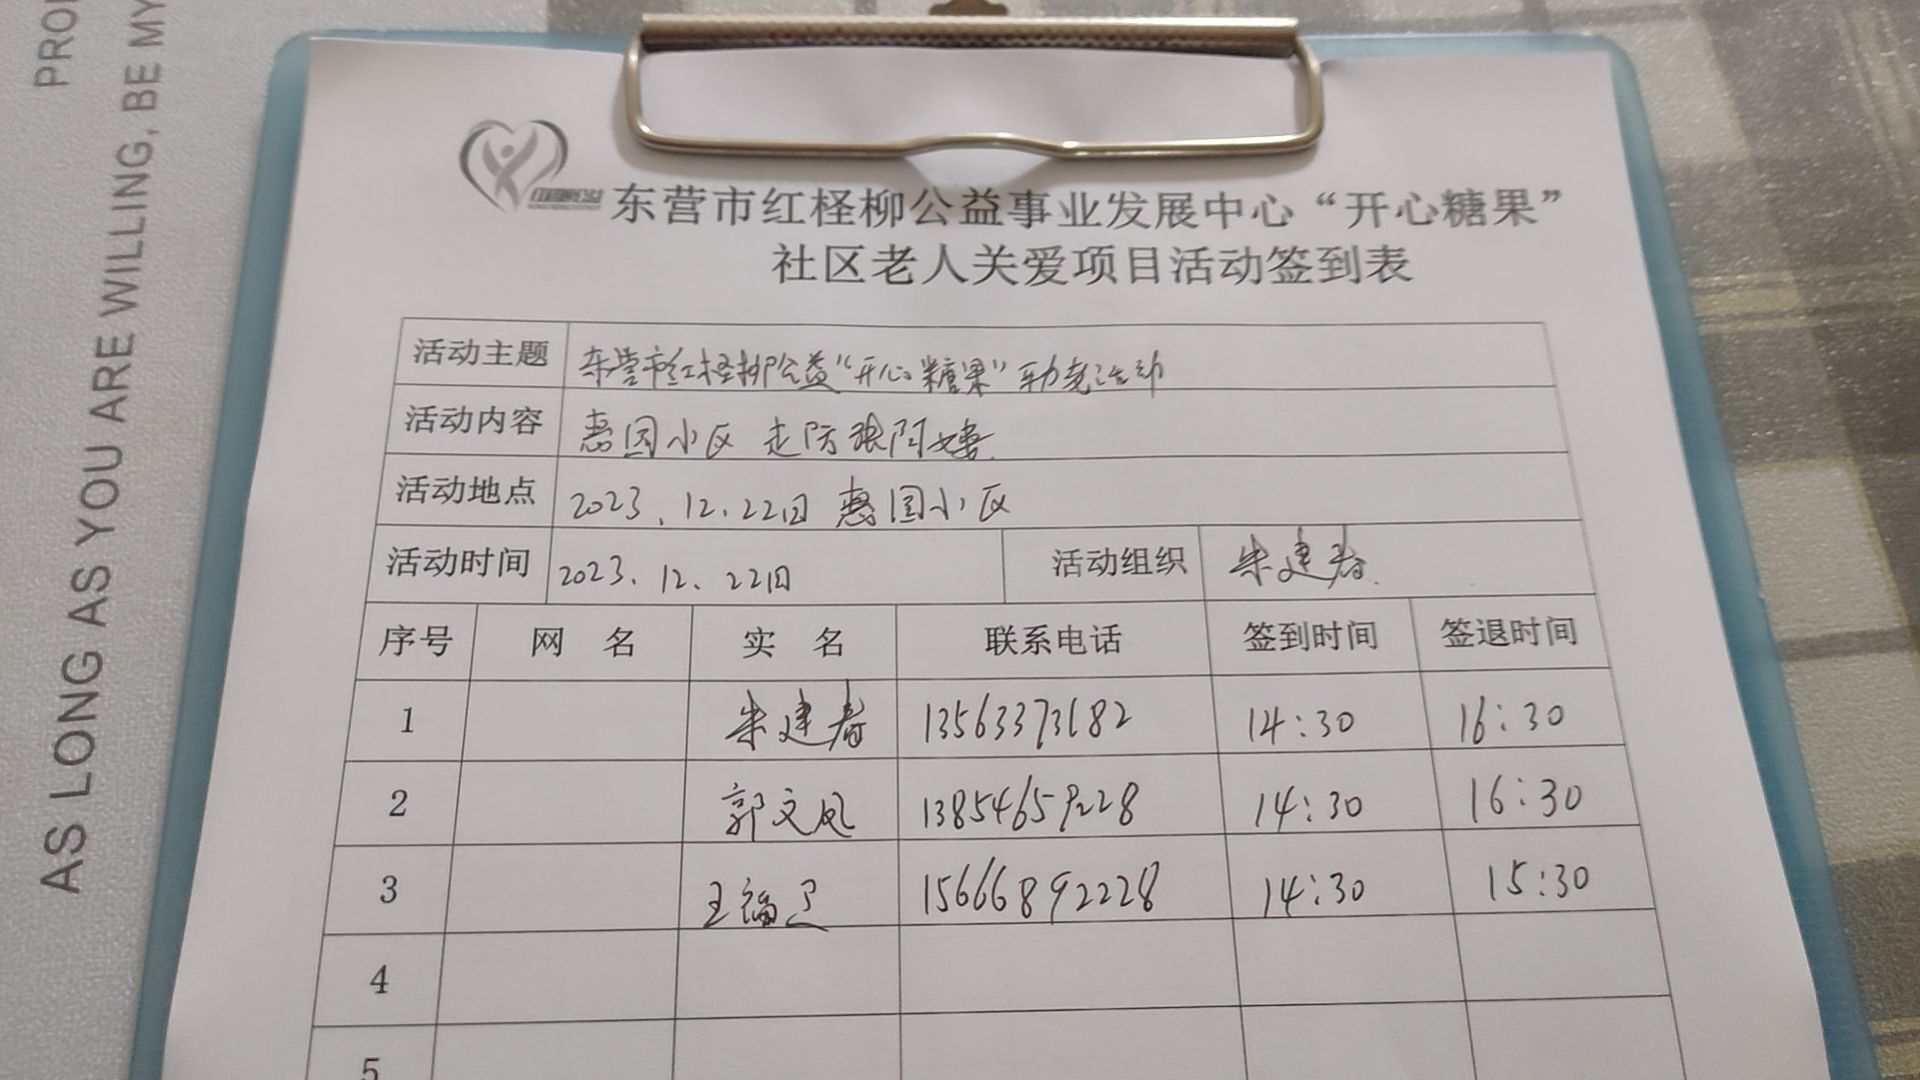 PRO
AS LONG AS YOU ARE WILLING, BE MY
东营市红柽柳公益事业发展中心“开心糖果”
社区老人关爱项目活动签到表
活动主题 东营市红柽柳公益“开心糖果”助老活动
活动内容 惠园小区 走访张阿姨
活动地点 2023.12.22日 惠园小区
活动时间 2023.12.22日 活动组织 朱建春
序号 网 名 实 名 联系电话 签到时间 签退时间
1 朱建春 13563373682 14:30 16:30
2 郭文凤 13854659228 14:30 16:30
3 王福 15666892228 14:30 15:30
4
5